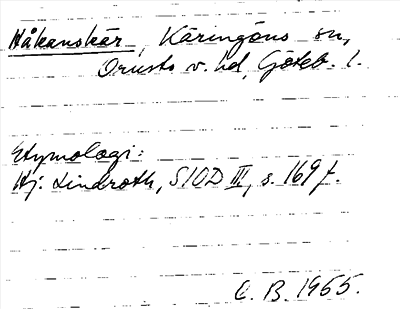 Håkanskär, Käringöns sn,
Orusts v. hd, Göteb. l.
Etymologi:
Hj. Lindroth, SIOD III, s. 169 f.
C. B. 1955.